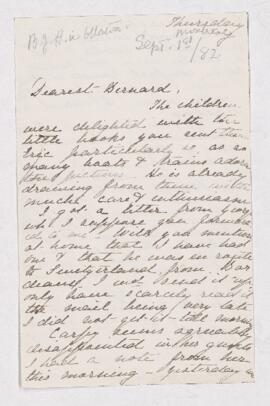 B.J.H. in
Thursday
Morning
Sept. 1st/82
Dearest Bernard,
The children
were delighted with the
little books you sent them
Eric particularly so, as so
many boats & trains adorn
the pictures. He is already
drawing from them with
much care & enthusiasm
I got a letter from
wh. I suppose you
me. Will you mention
at home that I have had
one & that he was in route
to from
I not send it
only have I scarcely read it
the mail being very late
I did not get it till
Carry seems agreeably
disappointed in her
I had a note from her
this morning - yesterday